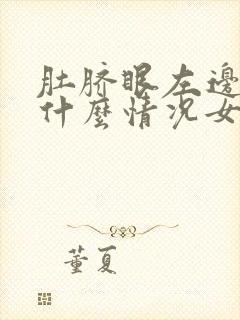 肚脐眼左邊
什麼情况女
董夏